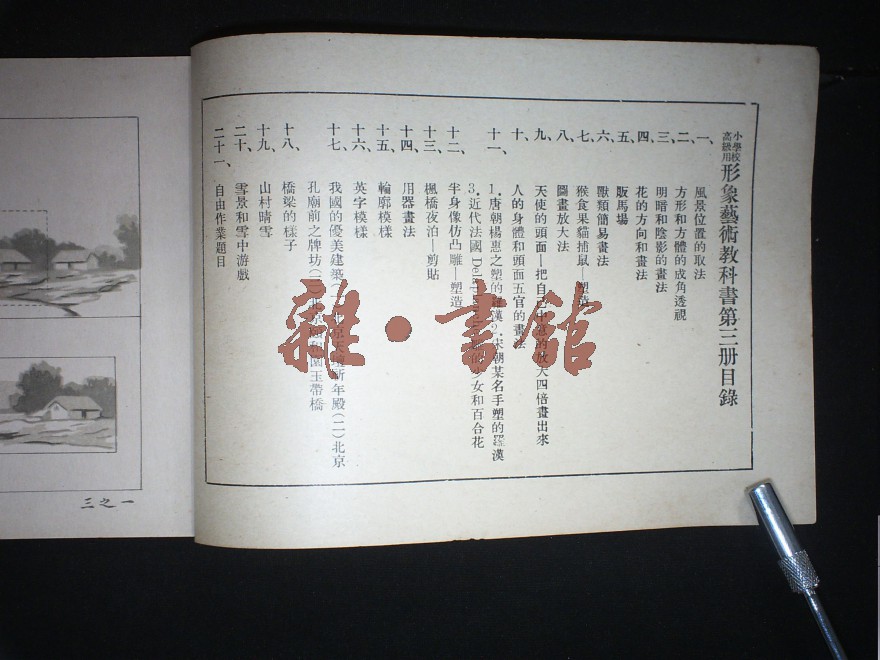 小學校
高級用
形象藝術教科書第三册目錄
一、風景位置的取法
二、方形和方體的成角透視
三、明暗和陰影的畫法
四、花的方向和畫法
五、販馬場
六、獸類簡易畫法
七、猴食果貓捕鼠—塑造
八、圖畫放大法
九、天使的頭面—把自己中意的放大四倍畫出來
十、人的身體和頭面五官的畫法
十一、1.唐朝楊惠之塑的羅漢2.宋朝某名手塑的羅漢
3.近代法國 少女和百合花
十二、半身像仿凸雕—塑造
十三、楓橋夜泊—剪貼
十四、用器畫法
十五、輪廓模樣
十六、英字模樣
十七、我國的優美建築(一)北京天壇祈年殿(二)北京
孔廟前之牌坊(三)北京頤和園玉帶橋
十八、橋梁的樣子
十九、山村晴雪
二十、雪景和雪中游戲
二十一、自由作業題目
三之一
雜·書館